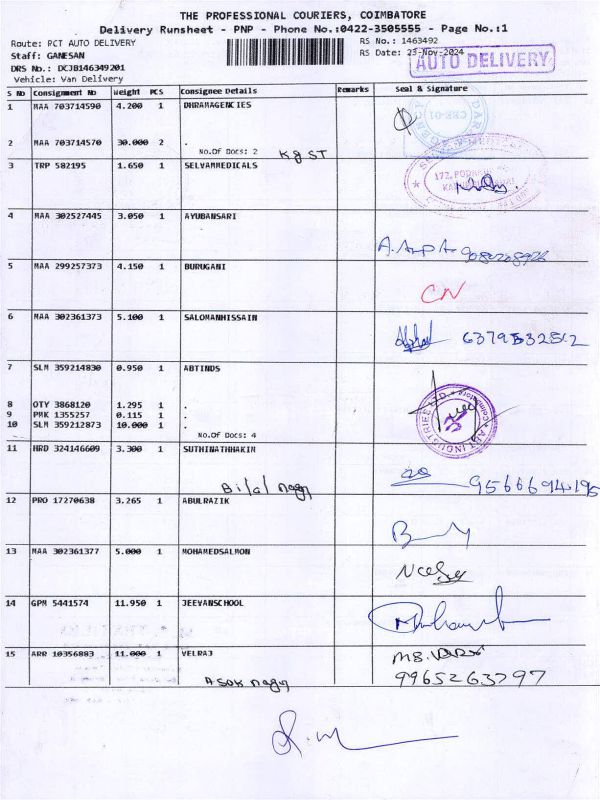 THE PROFESSIONAL COURIERS, COIMBATORE
Delivery Runsheet - PNP - Phone No.:0422-3505555 - Page No.:1
Route: PCT AUTO DELIVERY
RS No.: 1463492
Staff: GANESAN
RS Date: 23-Nov-2024
AUTO DELIVERY
DRS No.: DCJB146349201
Vehicle: Van Delivery
S No Consignment No Weight PCS Consignee Details Remarks Seal & Signature
1 MAA 703714590 4.200 1 DHRAMAGENCIES
2 MAA 703714570 30.000 2 .
No.Of Docs: 2
Kg ST
3 TRP 582195 1.650 1 SELVAMMEDICALS
4 MAA 302527445 3.050 1 AYUBANSARI
5 MAA 299257373 4.150 1 BURUGANI
CN
6 MAA 302361373 5.100 1 SALOMANHISSAIN
7 SLM 359214830 0.950 1 ABTINDS
8 OTY 3868120 1.295 1 .
9 PMK 1355257 0.115 1 .
10 SLM 359212873 10.000 1 .
No.Of Docs: 4
11 HRD 324146609 3.300 1 SUTHINATHHAKIN
Bilal nagr
9566694195
12 PRO 17270638 3.265 1 ABULRAZIK
13 MAA 302361377 5.000 1 MOHAMEDSALMON
14 GPM 5441574 11.950 1 JEEVANSCHOOL
15 ARR 10356883 11.000 1 VELRAJ
Asok nagr
9965263797